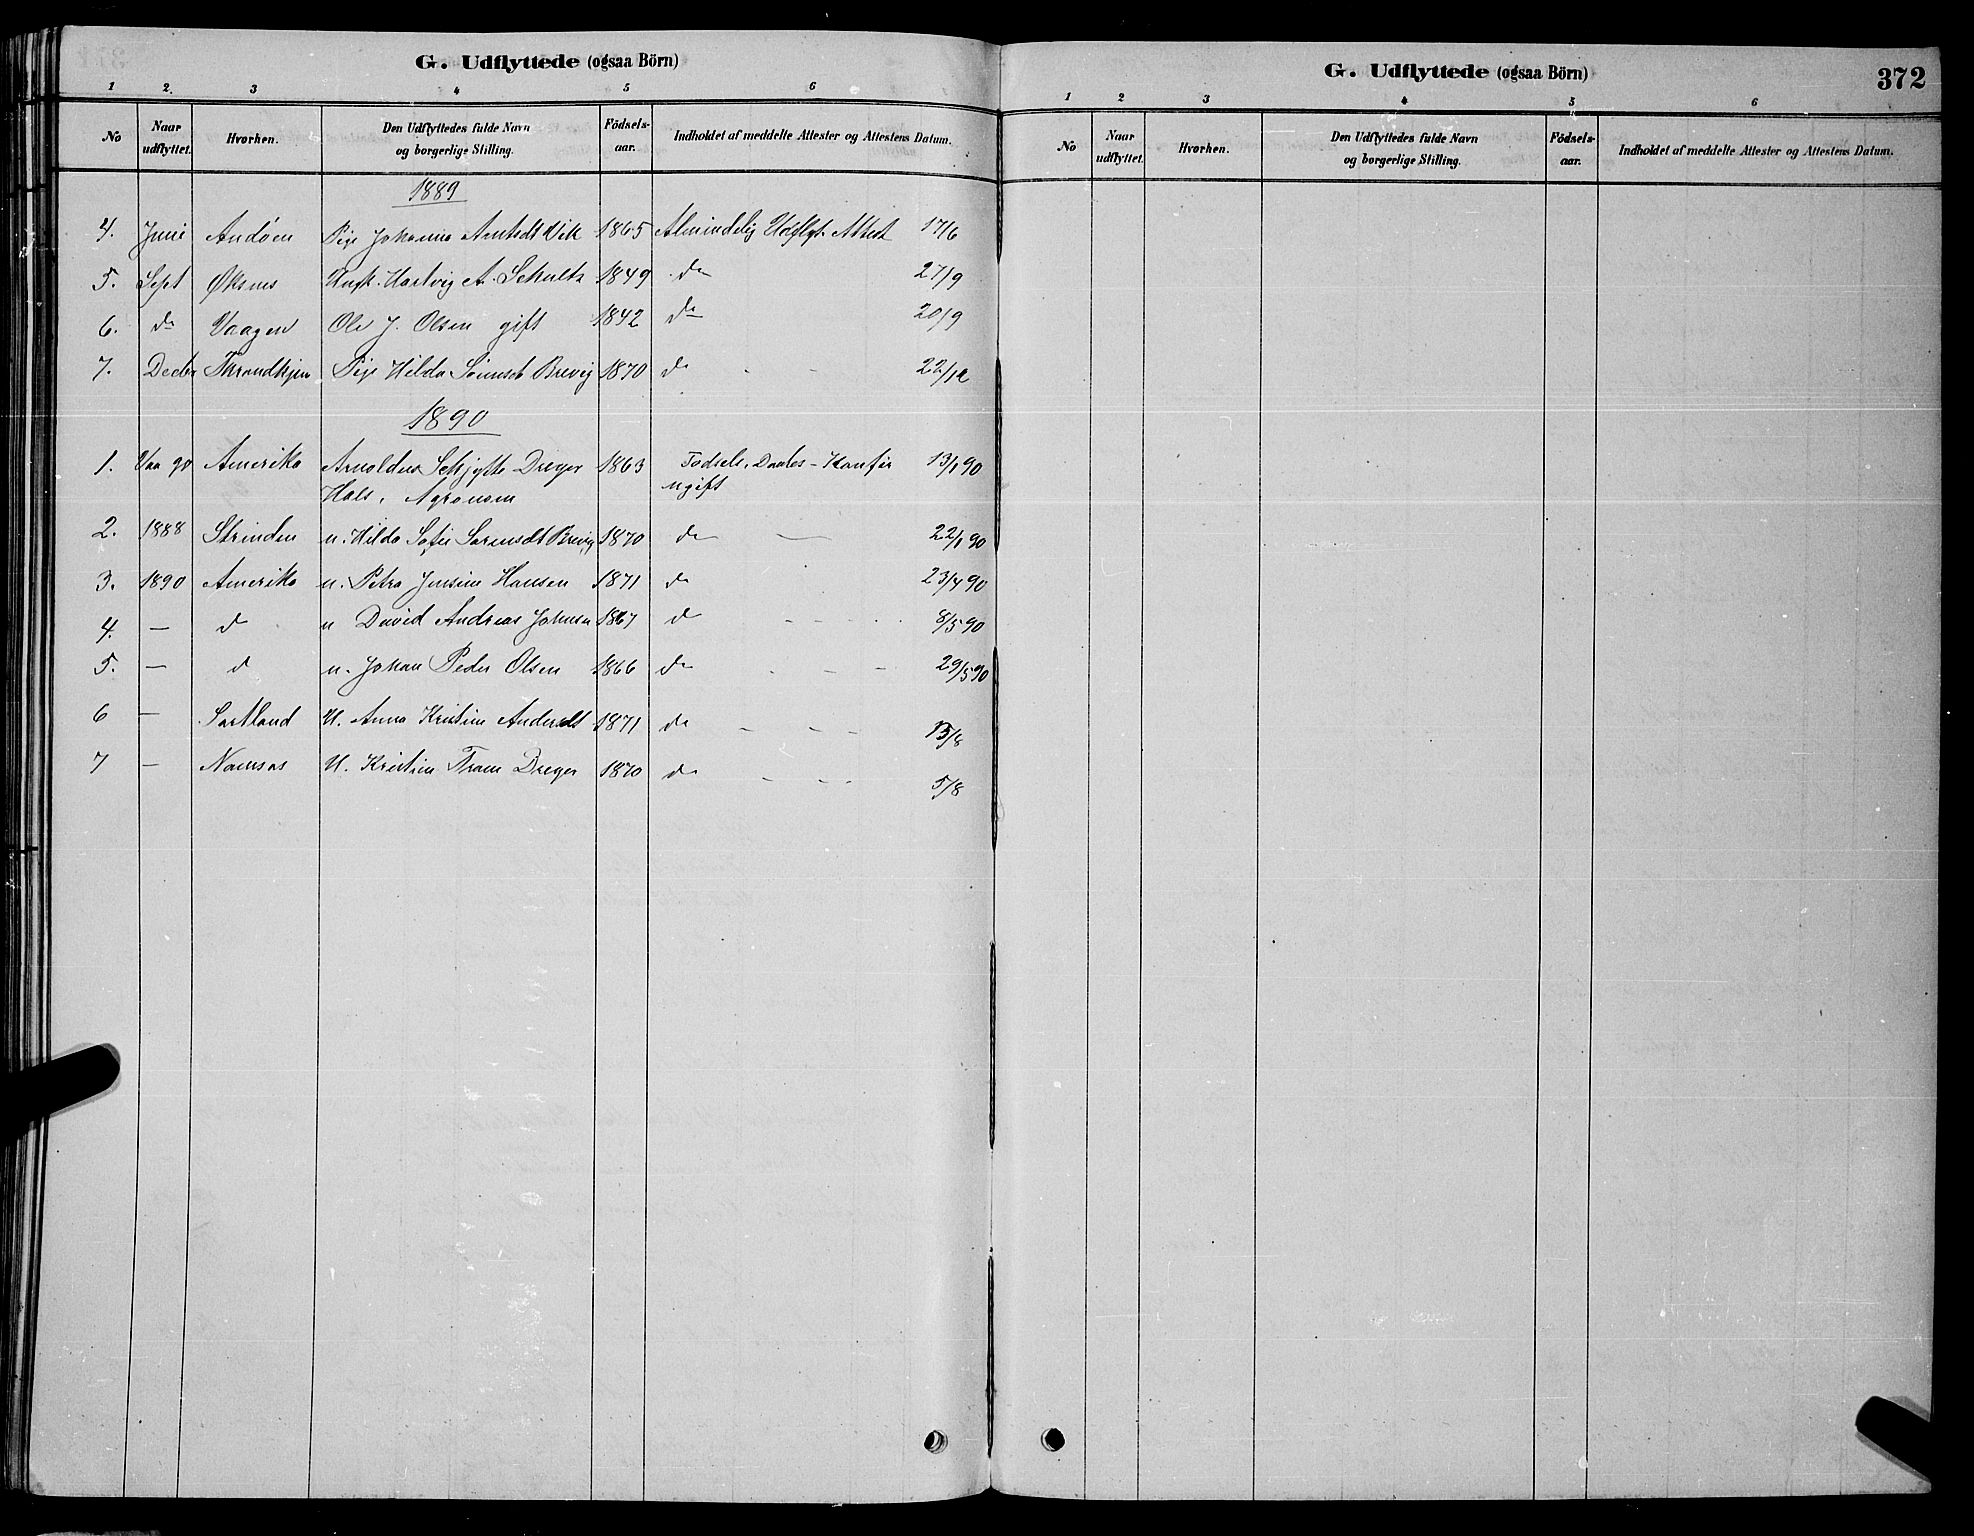 G. Udflyttede (ogsaa Börn)
1 2. 3 4 5 6
No Naar udflyttet. Hvorhen. Den Udflyttedes fulde Navn og borgerlige Stilling. Födsels-aar. Indholdet af meddelte Attester og Attestens Datum.
1889
4. Juni Andöen Pige Johanna Arntsdt Vik 1865 Almindelig Udflyt. Attest 17/6
5. Sept Øksnes Husk. Hartvig A. Schultz 1849 do 27/9
6. do Vaagen Ole J. Olsen gift 1842 do 20/9
7. Decbr Throndhjem Pige Hilda Sörensdt Brevig 1870 do 22/12
1890
1. Vaa 90 Amerika Arnoldus Schjytte Dreyer 1863 Födsels, Daabs- Konfir 13/1 90
Hals, Agronom ugift
2. 1888 Strinden u. Hilda Sofie Sörensdt Brevig 1870 do 22/1 90
3. 1890 Amerika u. Petra Jensine Hansen 1871 do 23/4 90
4. — d u David Andreas Johnsen 1867 d 8/5 90
5. — d u. Johan Peder Olsen 1866 do 29/5 90
6 — Sortland U. Anna Kristine Andersdt 1871 do 15/8
7 — Namsos U. Kristine Dreyer 1870 do 5/8
G. Udflyttede (ogsaa Börn) 372
1 2 3 4 5 6
No Naar udflyttet. Hvorhen. Den Udflyttedes fulde Navn og borgerlige Stilling. Födsels-aar. Indholdet af meddelte Attester og Attestens Datum.